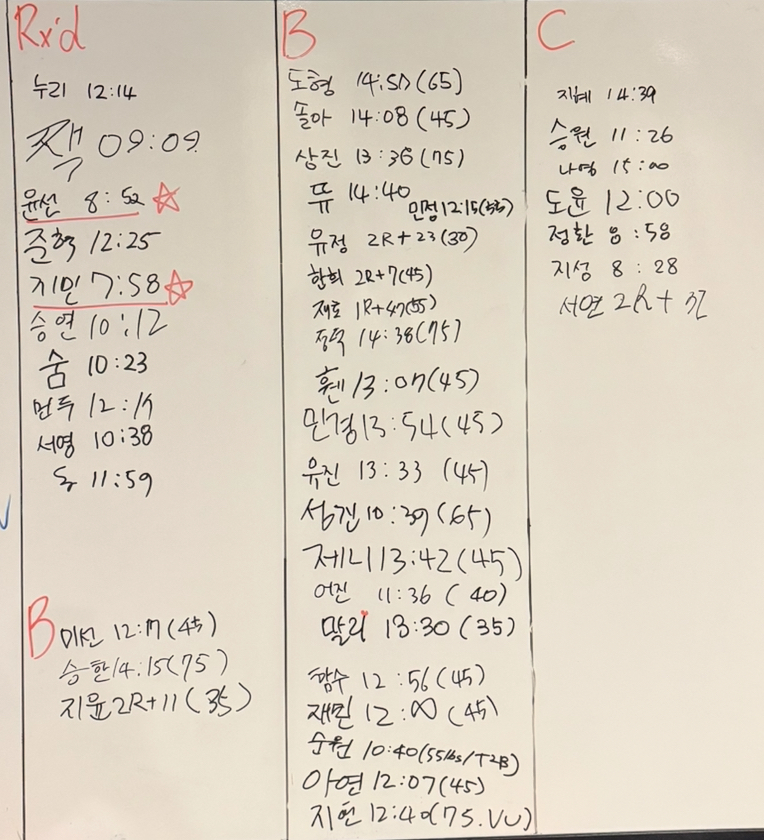 Rx'd
누리 12:14
쨱 09:09
윤선 8:52
준혁 12:25
지민 7:58
승연 10:12
숨 10:23
만두 12:19
서영 10:38
동 11:59
B
미선 12:17(45)
승한 14:15(75)
지윤 2R+11(35)
B
도형 14:50(65)
솔아 14:08(45)
상진 13:36(75)
뜌 14:40
민정 12:15(35)
유정 2R+23(30)
함희 2R+7(45)
재호 1R+47(55)
14:38(75)
휀 13:07(45)
민경 13:54(45)
유진 13:33 (45)
성진 10:39(65)
제니 13:42(45)
어진 11:36 (40)
말리 13:30 (35)
함수 12:56(45)
재민 12:00(45)
순원 10:40(55lbs/T2B)
아연 12:07(45)
지헌 12:40(75.VU)
C
지혜 14:39
승원 11:26
나영 15:00
도윤 12:00
정환 8:58
지성 8:28
서연 2R+